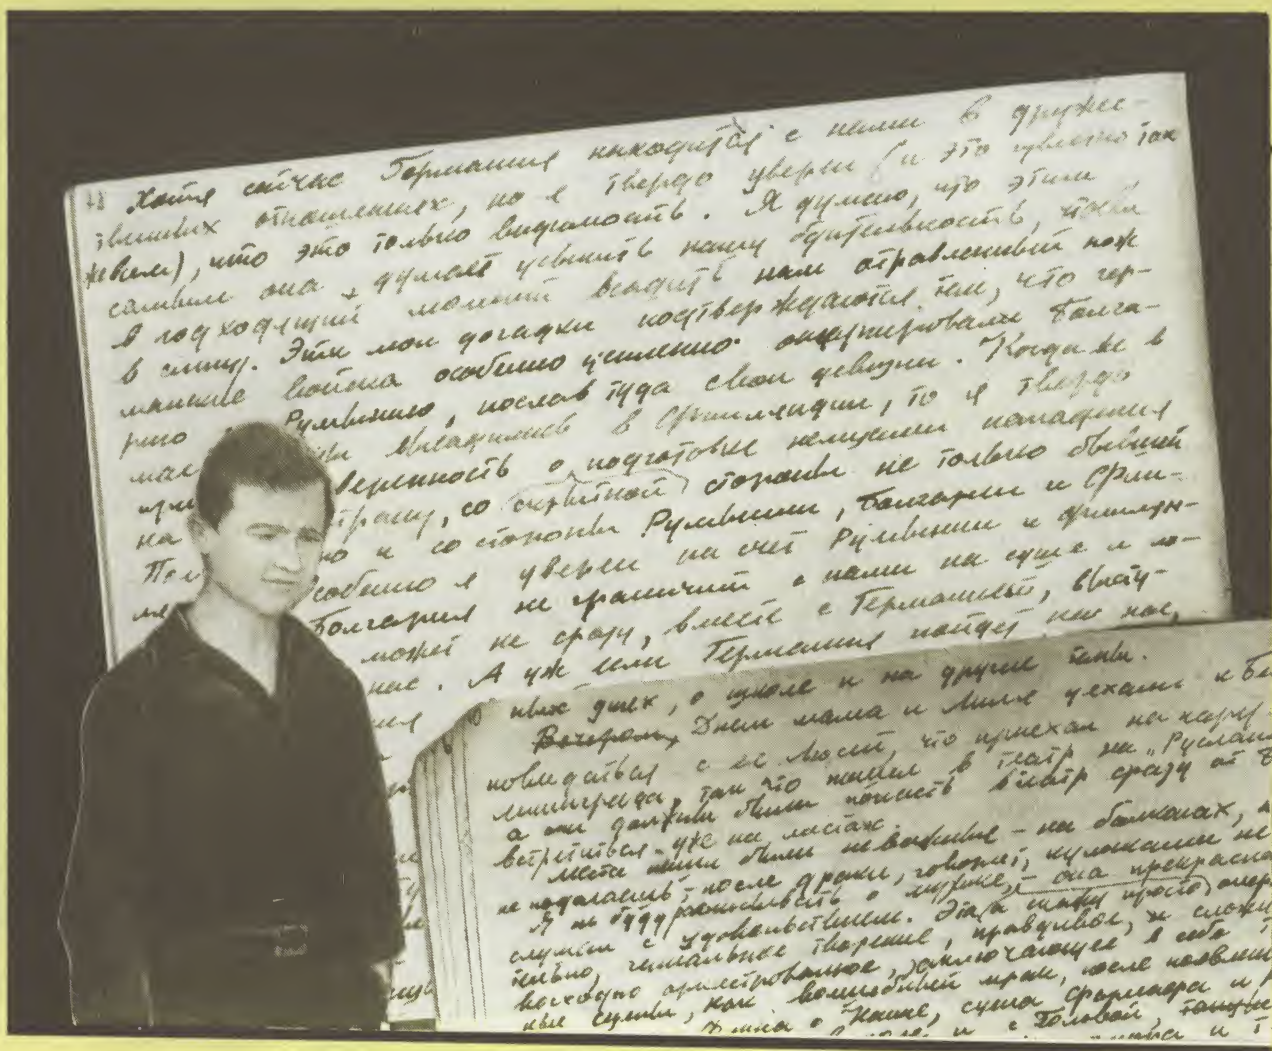 Хотя сейчас Германия находится с нами в дружес-
твенных отношениях, но я твердо уверен (и это известно так
же всем), что это только видимость. Я думаю, что этим
самым она думает усыпить нашу бдительность, чтобы
в подходящий момент всадить нам отравленный нож
в спину. Эти мои догадки подтверждаются тем, что гер-
манские войска особенно усиленно оккупировали Болга-
рию Румынию, послав туда свои дивизии. Когда же в
мае высадились в Финляндии, то я твердо
при веренность о подготовке немцами нападения
на страну, со стороны не только бывшей
По но и со стороны Румынии, Болгарии и Фин-
ля собенно я уверен на счет Румынии и финлян-
Болгария не граничит с нами на суше и по-
может не сразу, вместе с Германией, высту-
нас. А уж если Германия пойдет на нас,
ных днях, о школе и на другие темы.
Вечером, Днем мама и Миля уехали к Б
повидаться с ее Люсей, что приехал на кару-
Ленинграда, так что пошел в театр на „Руслана
а они должны были попасть в театр сразу от Б
встретиться уже на местах.
Места наши были неважные - на балконах, н
не подрались, после драки, говорят, кулаками не
Я не буду рассказывать о музыке, - она прекрасна
слушал с удовольствием. Эта просто опера
тельно, гениальное творение, правдивое, и сложн
восходно оркестрованное, заключающее в себе
ные сцены, как волшебный мрак, после появлени
Финна о Наине, сцена Фарлафа и
с Головой, танцы
и